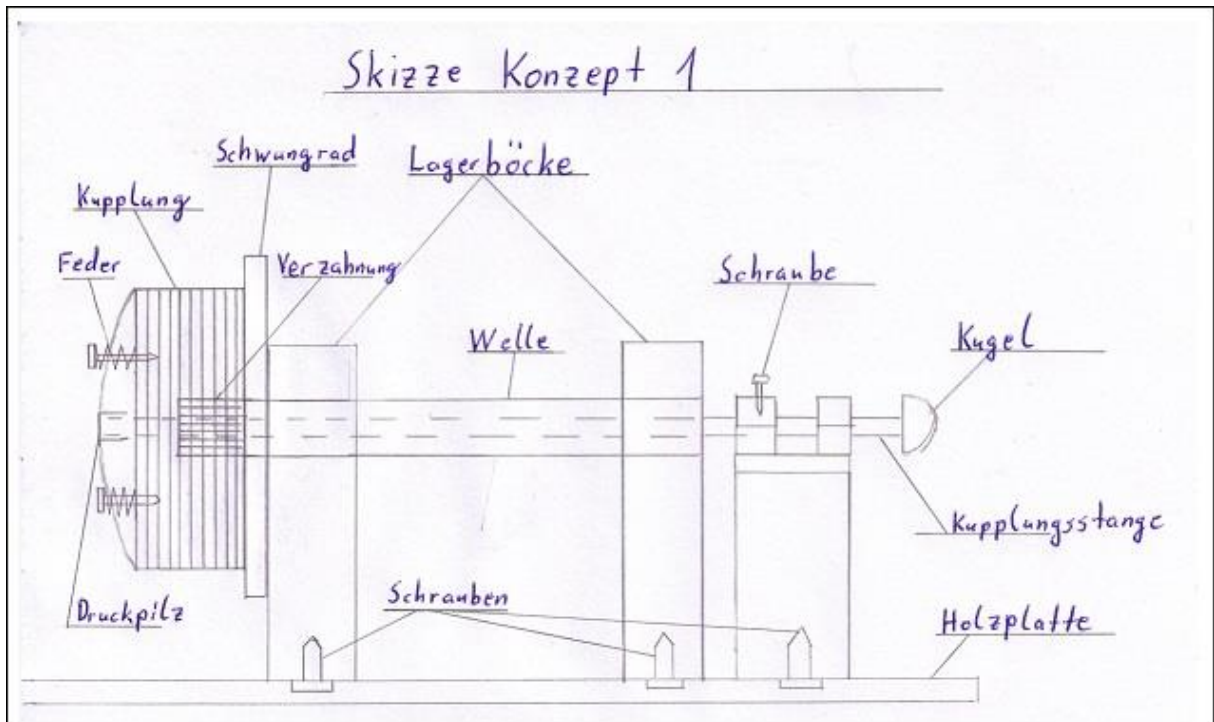 Skizze Konzept 1
Schwungrad
Lagerböcke
Kupplung
Feder
Verzahnung
Schraube
Welle
Kugel
Kupplungsstange
Schrauben
Druckpilz
Holzplatte